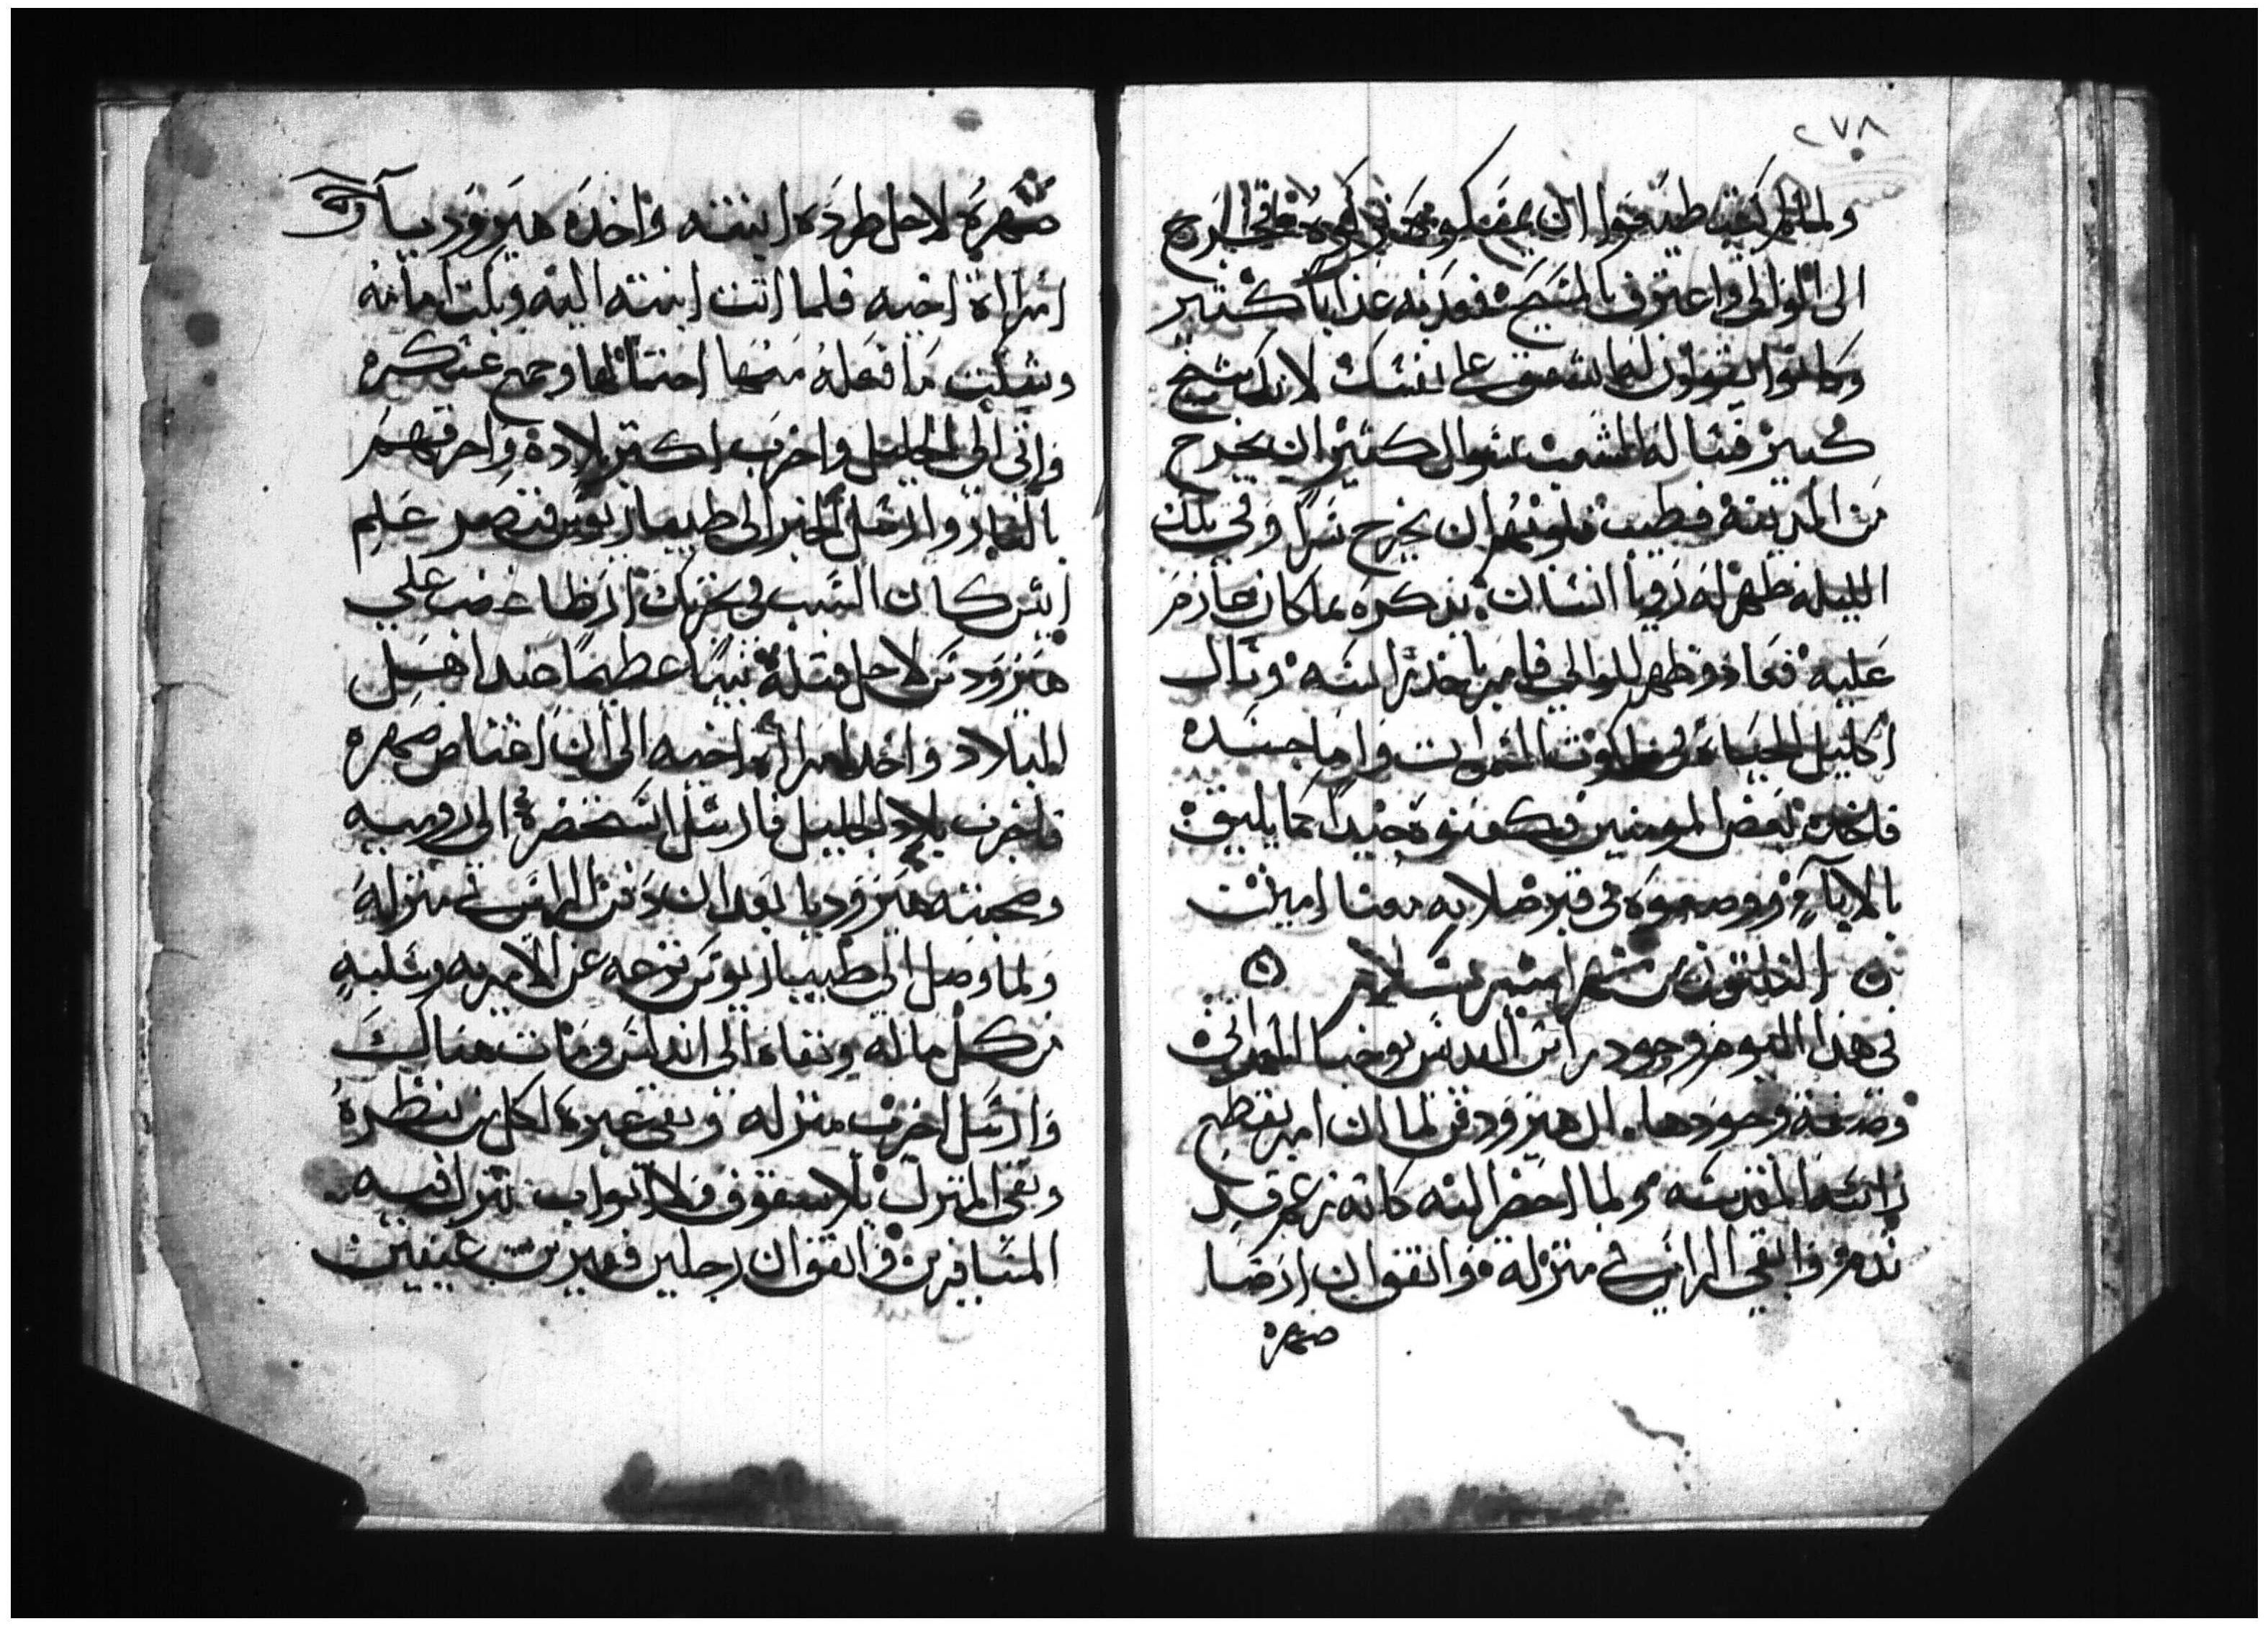 ٢٧٨
الى الوالي واعترف بالمسيح فعذبه عذاباً كثير
وكانوا يقولون له اشفق على نفسك لانك شيخ
كبير فسا له الشعب سوال كثير ان يخرج
من المدينة فطيب قلوبهم ان يخرج سراً وفي تلك
الليلة ظهر له رويا انسان يذكره بما كان عازم
عليه فعاد وظهر للوالي فامر باخذ راسه ونال
اكليل الحياة في ملكوت السموات واما جسده
فاخذه بعض المومنين وكفنوه جيداً كما يليق
بالابآ ووضعوه في قبر صلاته معنا امين
الثلتون من شهر امشير بسلام
في هذا اليوم وجود راس القديس يوحنا المعمداني
وصفة وجودها ان هيرودس لما ان امر بقطع
راسه المقدسه ولما احضر اليه كانه زعم قد
ندم وابقى الراس في منزله واتفق ان ارطا
صهره
صهره لاجل طرده ابنته واخده هيروديا
امراة اخيه فلما اتت ابنته اليه وبكت امامه
وشكت ما فعله معها احتمالها وجمع عسكره
واتى الى الجليل واخرب اكتر بلاده واحرقهم
بالنار وارسل الخبر الى طيباريوس قيصر علم
ايش كان السبب في تحريك ارطا غضب علي
هيرودس لاجل قتله نبياً عظيماً عند اهل
البلاد واخد امراة اخيه الى ان اغتاص صهره
فاخرب بلاد الجليل فارسل استحضره الى روميه
وصحبته هيروديا بعد ان دفن الراس في منزله
ولما وصل الى طيباريوس نزحه عن الامريه وسلبه
من كل ماله ونفاه الى اندلس ومات هنالك
وارسل اخرب منزله وبقى عبره لكل من ينظره
وبقى المنزل بلا سقوف ولا ابواب تنزل فيه
المسافرين واتفق ان رجلين قديرين عينين